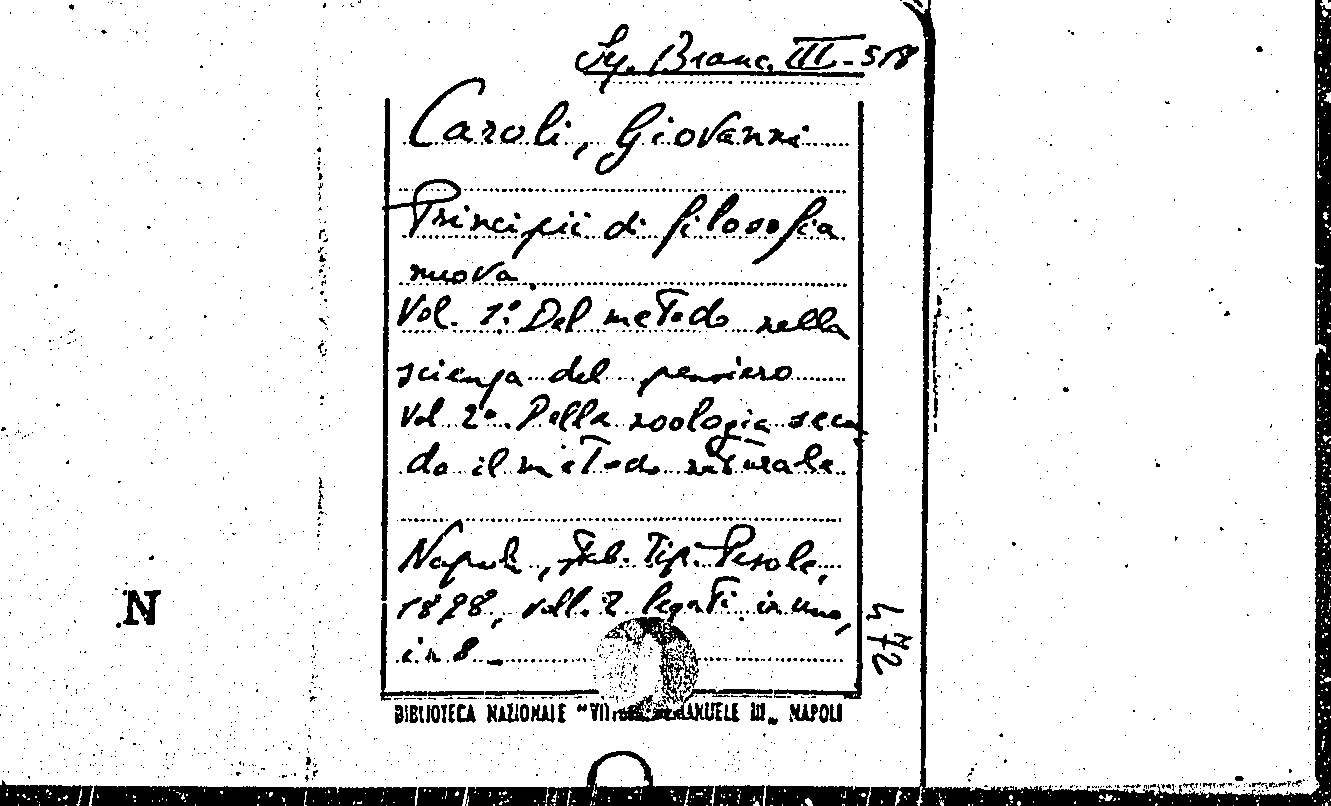 Sy. Branc. III-518
Caroli, Giovanni
Principii di filosofia
nuova.
Vol. 1º. Del metodo nella
scienza del pensiero
Vol 2º. Della zoologia secon
do il metodo naturale
Napoli, Stab. Tip. Perole,
1898, voll. 2 legati in uno,
in 8
472
N
BIBLIOTECA NAZIONALE "VITTORIO EMANUELE III„ NAPOLI